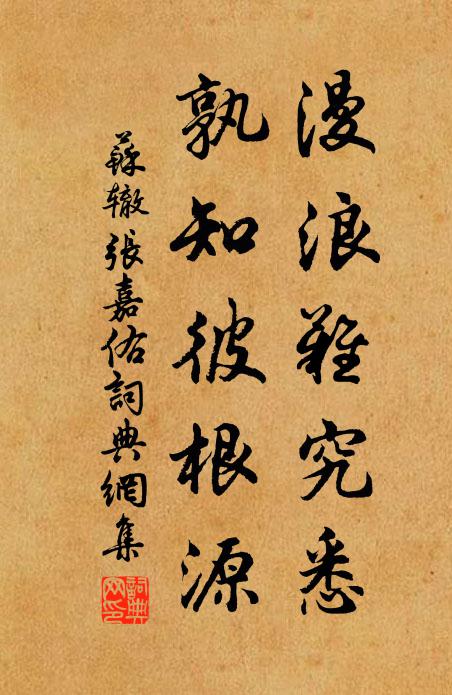 漫浪難究悉
孰知彼根源
蘇辙張嘉佑詞典網集
詞典
网印